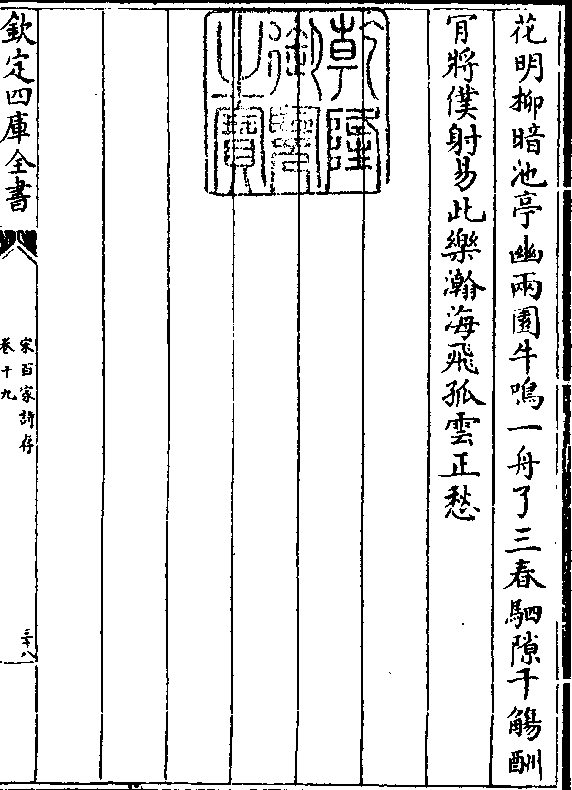 花明柳暗池亭幽兩園牛鳴一舟了三春駟隙千觴酬
肎將僕射易此樂瀚海飛孤雲正愁
乾隆
御覽
之寶
欽定四庫全書
宋百家詩存
卷十九
三十八